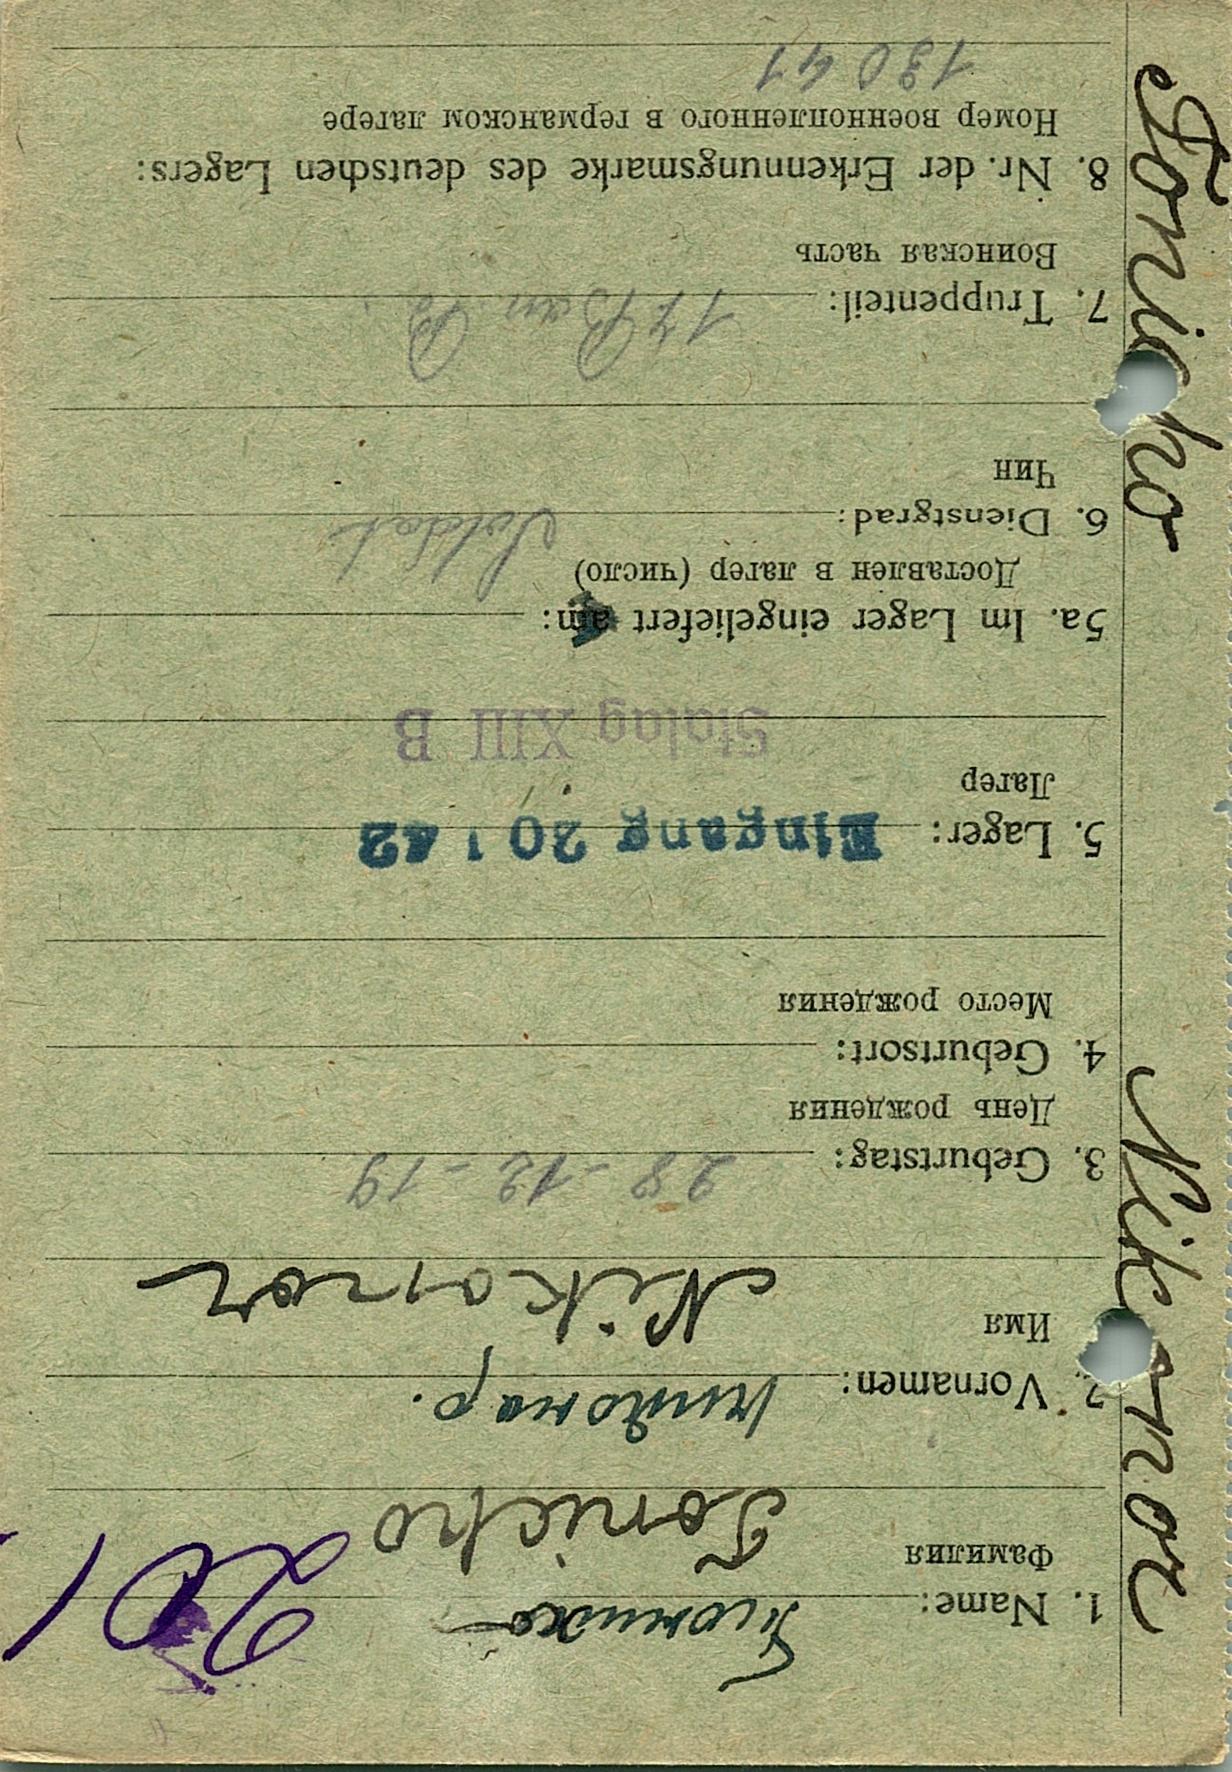 1. Name:
Фамилия
Tonicho
2. Vornamen: Никонар.
Имя
Nikanor
3. Geburtstag: 28 - 12 - 19
День рождения
4. Geburtsort:
Место рождения
5. Lager: Eingang 20 1 42
Лагер
Stalag XIII B
5a. Im Lager eingeliefert am:
Доставлен в лагер (число)
6. Dienstgrad: Soldat
Чин
7. Truppenteil: 17 Bau B.
Воинская часть
8. Nr. der Erkennungsmarke des deutschen Lagers:
Номер военнопленного в германском лагере
13041
Tonicho Nikanor